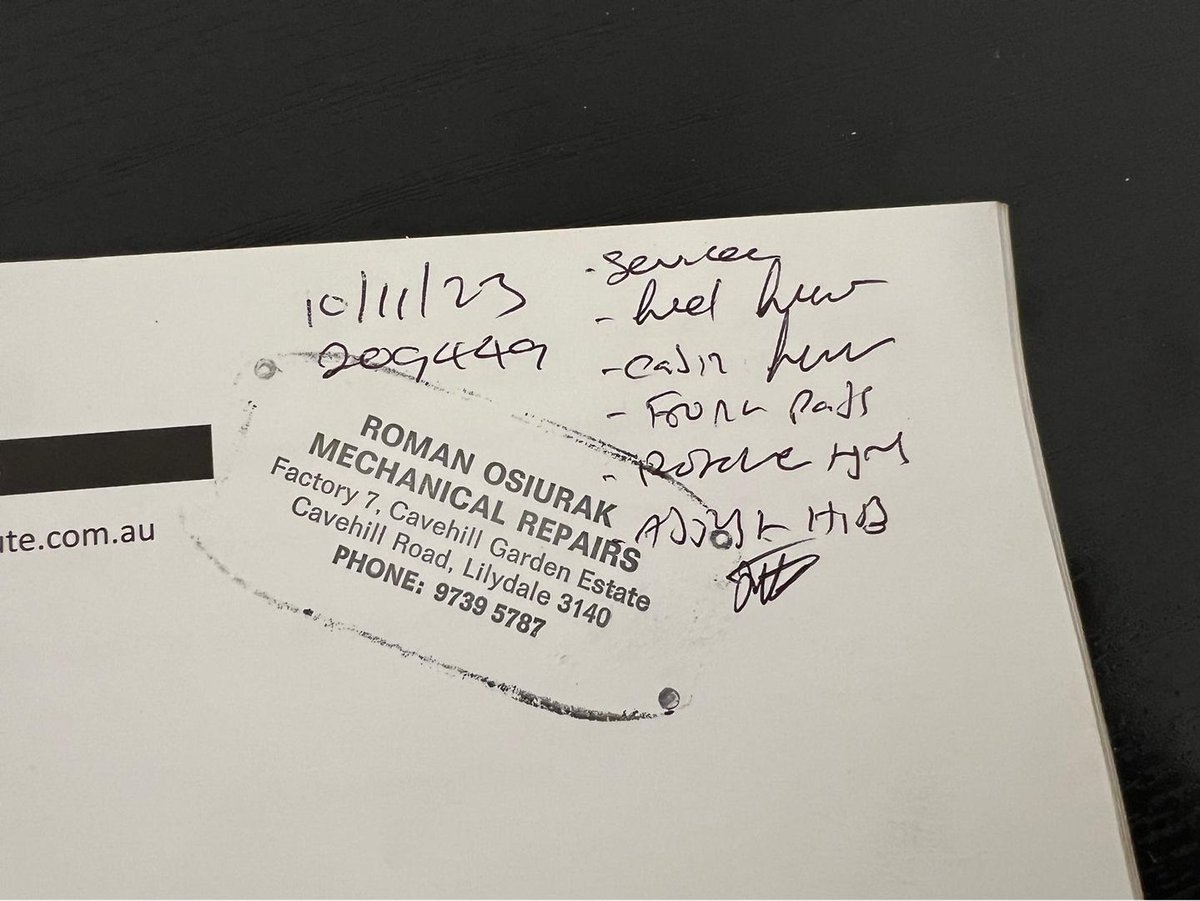 10/11/23
209449
- Service
- fuel filter
- Cabin filter
- Front Pads
- Rotate tyres
- Adjust H/B
ROMAN OSIURAK
MECHANICAL REPAIRS
Factory 7, Cavehill Garden Estate
Cavehill Road, Lilydale 3140
PHONE: 9739 5787
ute.com.au